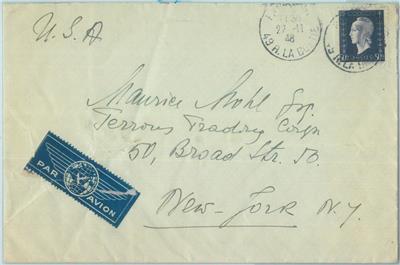 U.S.A
27-11
46
49 R. LA BOETIE
Maurice Mohl Esq.
Ferrous Trading Corpn
50, Broad Str. 50.
New-York N.Y.
PAR AVION